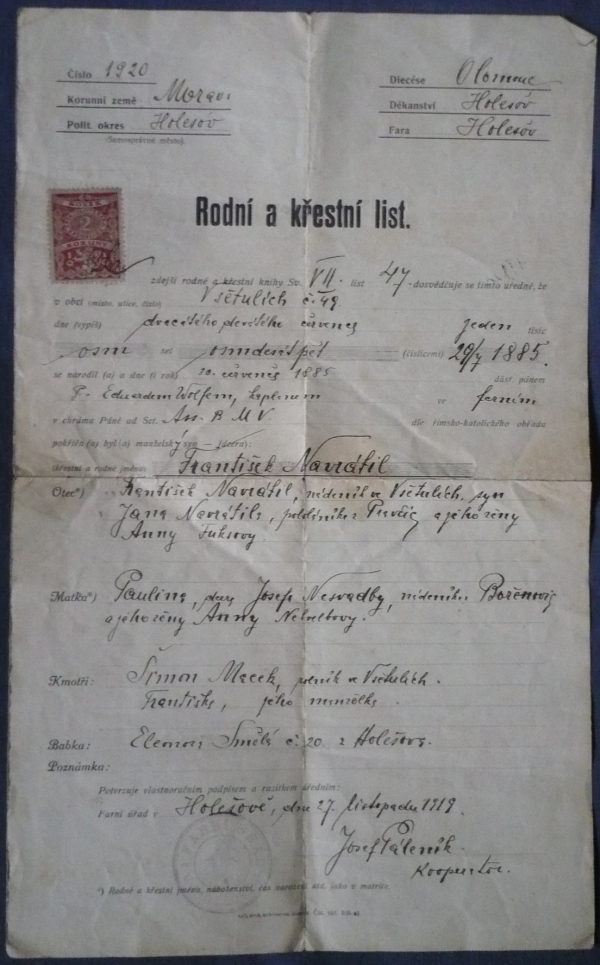 Číslo 1920
Korunní země Morava
Polit. okres Holešov
(Samosprávné město).
Diecése Olomouc
Děkanství Holešov
Fara Holešov
KOLEK
2
KORUNY
Rodní a křestní list.
zdejší rodné a křestní knihy Sv. VII. list 47. dosvědčuje se tímto úředně, že
v obci (místo, ulice, číslo) Všetulích č. 49.
dne (vypiš) dvacátého devátého července jeden tisíc
osm set osmdesát pět (číslicemi) 29/7 1885.
se narodil (a) a dne (i rok) 30. července 1885 důst. pánem
P. Eduardem Wolfem, kaplanem ve farním
v chrámu Páně ad Sct. Ass. B M V dle římsko-katolického obřadu
pokřtěn(a) byl(a) manželský syn — (dcera):
(křestní a rodné jméno) František Navrátil
Otec*) František Navrátil, nádeník ve Všetulích, syn
Jana Navrátila, a jeho ženy
Anny Fuksovy
Matka*) Paulina, dcera Josefa Nesvadby, nádeníka
a jeho ženy Anny
Kmotři: Šimon Macek, rolník ve Všetulích.
Františka, jeho manželka.
Babka: Eleonora Smělá č. 20 z Holešova.
Poznámka:
Potvrzuje vlastnoručním podpisem a razítkem úředním:
Farní úřad v Holešově, dne 27. listopadu 1919.
Josef Páleník
Kooperator.
*) Rodné a křestní jméno, náboženství, čas narození atd. jako v matrice.